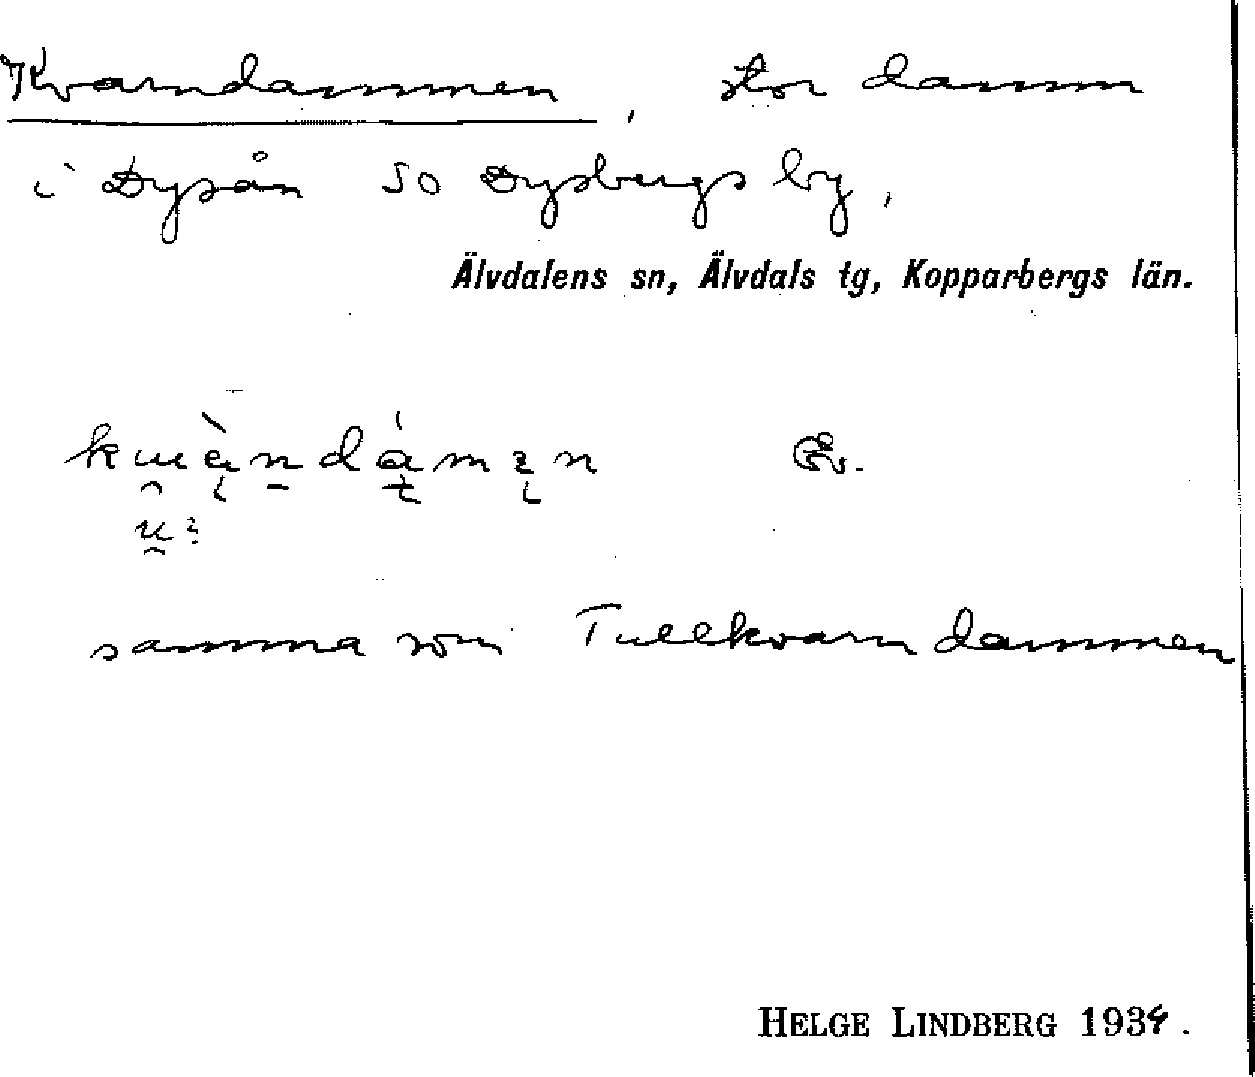 Kvarndammen, stor damm
i Dysån SO Dysbergs by,
Älvdalens sn, Älvdals tg, Kopparbergs län.
samma som Tullkvarndammen
HELGE LINDBERG 1934.